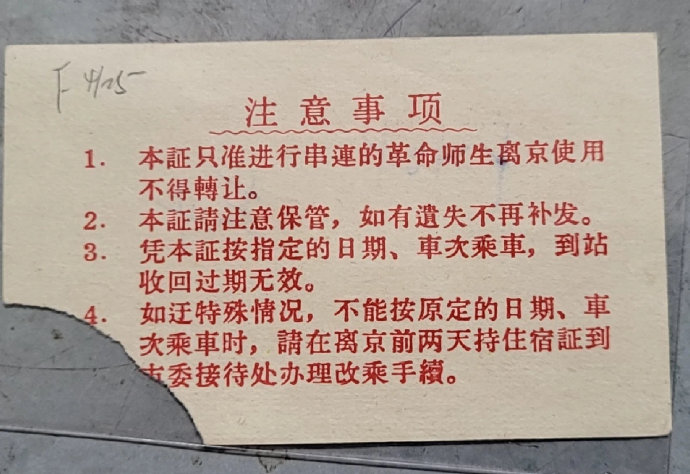 注意事项
1. 本証只准进行串連的革命师生离京使用
不得轉让。
2. 本証請注意保管，如有遺失不再补发。
3. 凭本証按指定的日期、車次乘車，到站
收回过期无效。
4. 如迂特殊情况，不能按原定的日期、車
次乘車时，請在离京前两天持住宿証到
市委接待处办理改乘手續。